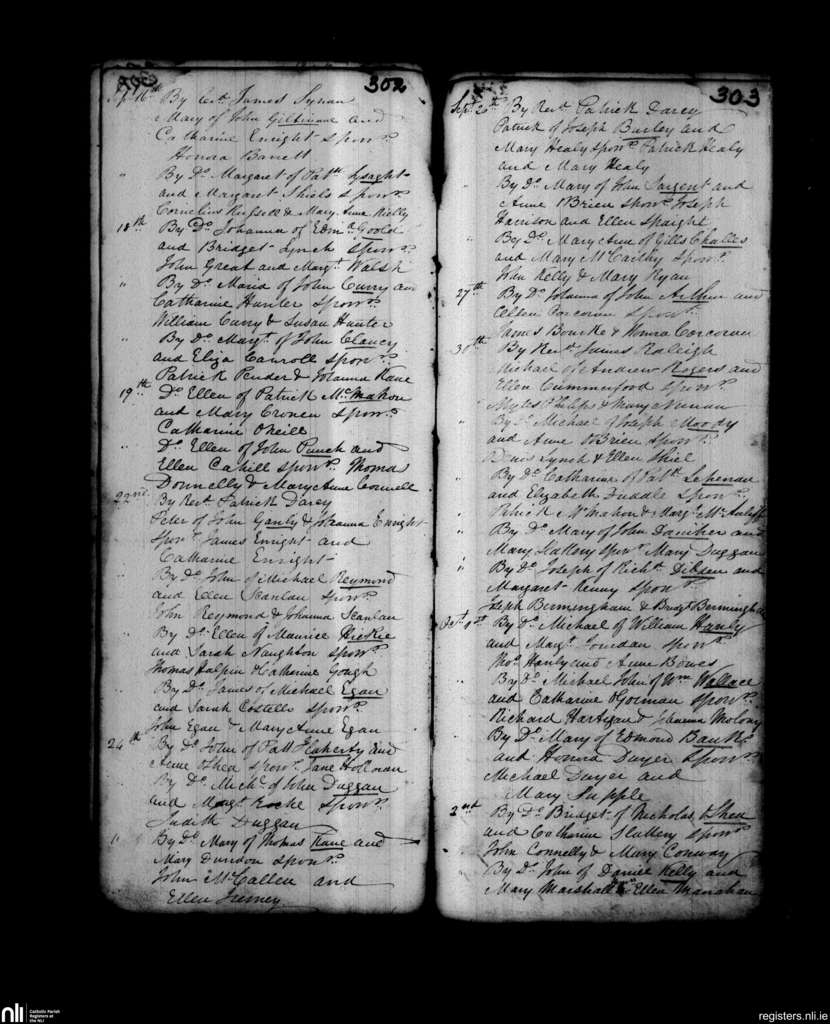 302
Sept 16th By Revd. James Synan
Mary of John Giltinane and
Catharine Enright sponrs.
Honora Barrett
" By Do. Margaret of Patk. Lysaght
and Margaret Shiels sponrs.
Cornelius Russell & Mary Anne Kielly
18th By Do. Johanna of Edmd. Goold
and Bridget Lynch sponrs.
John Great and Margt. Walsh
" By Do. Maria of John Curry and
Catharine Hunter sponrs.
William Curry & Susan Hunter
" By Do. Margt. of John Clancy
and Eliza Carroll sponrs.
Patrick Pender & Johanna Kane
19th Do. Ellen of Patrick McMahon
and Mary Cronen sponrs.
Catharine ONeill
" Do. Ellen of John Punch and
Ellen Cahill sponrs. Thomas
Donnelly & Mary Anne Connell
22nd By Revd. Patrick Darcy
Peter of John Ganly & Johanna Enright
sponrs. James Enright and
Catharine Enright
" By Do. John of Michael Reymond
and Ellen Scanlan sponrs.
John Reymond & Johanna Scanlan
" By Do. Ellen of Maurice Hickie
and Sarah Naughton sponrs.
Thomas Halpin & Catherine Gough
" By Do. James of Michael Egan
and Sarah Costello sponrs.
John Egan & Mary Anne Egan
24th By Do. John of Patt Flaherty and
Anne OShea sponrs. Jane Holloran
" By Do. Michl. of John Duggan
and Margt. Roche sponrs.
Judith Duggan
" By Do. Mary of Thomas Kane and
Mary Dundon sponrs.
John McCallen and
Ellen
303
Sept. 26th By Revd. Patrick Darcy
Patrick of Joseph Burley and
Mary Healy sponrs. Patrick Healy
and Mary Healy
" By Do. Mary of John Sargent and
Anne OBrien sponrs. Joseph
Harrison and Ellen Spaight
" By Do. Mary Anne of Gills Challes
and Mary McCarthy sponrs.
John Kelly & Mary Ryan
27th By Do. Johanna of John Arthur and
Ellen Corcoran sponrs.
James Bourke & Honora Corcoran
30th By Revd. James Raleigh
Michael of Andrew Rogers and
Ellen Cummerford sponrs.
Myles Philips & Mary
" By Do. Michael of Joseph Moody
and Anne OBrien sponrs.
Denis Lynch & Ellen Shiel
" By Do. Catharine of Patk. Lepenan
and Elizabeth Duddle sponrs.
" Patrick McMahon & Margt. McAuliffe
" By Do. Mary of John Daniher and
Mary Slattery sponrs. Mary Duggan
" By Do. Joseph of Richd. Dibden and
Margaret Kenny sponrs.
Joseph Bermingham & Bridgt Bermingham
Oct. 1st By Do. Michael of William Hanly
and Margt. Jourdan sponrs.
Thos. Hanly and Anne Bowes
" By Do. Michael John of Wm Wallace
and Catharine OGorman sponrs.
Richard Hartigan & Johanna Molony
" By Do. Mary of Edmond Banks
and Honora Dwyer sponrs.
Michael Dwyer and
Mary Supple
2nd By Do. Bridget of Nicholas OShea
and Catharine Slattery sponrs.
John Connelly & Mary Conway
By Do. John of Daniel Kelly and
Mary Marshall Ellen Manahan
nli Catholic Parish
Registers at
the NLI
registers.nli.ie